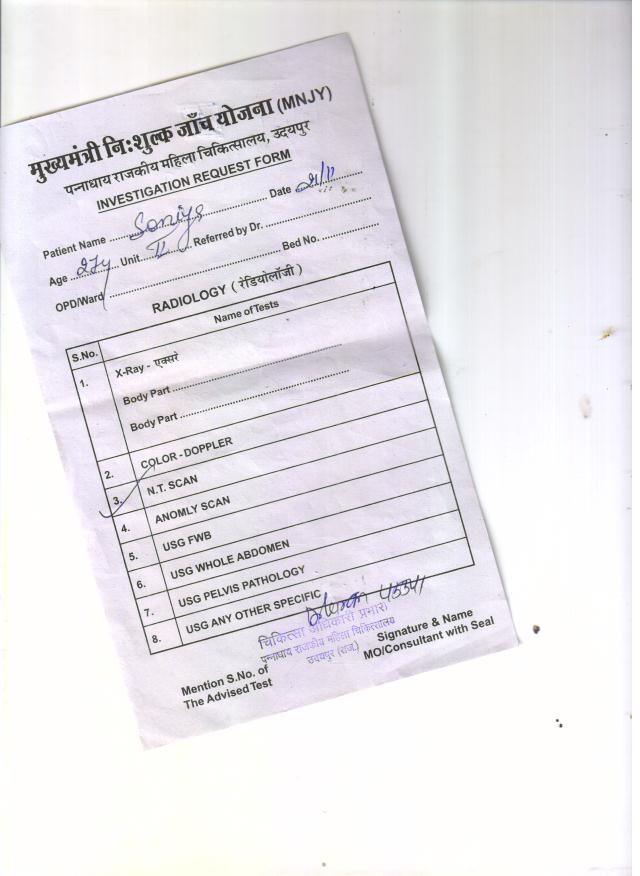 मुख्यमंत्री नि:शुल्क जाँच योजना (MNJY)
पन्नाधाय राजकीय महिला चिकित्सालय, उदयपुर
INVESTIGATION REQUEST FORM
Patient Name ........ Soniya ........ Date 21/11
Age 27y Unit II Referred by Dr. ........
OPD/Ward ........ Bed No. ........
RADIOLOGY ( रेडियोलॉजी )
S.No. Name of Tests
1. X-Ray - एक्सरे
Body Part ........
Body Part ........
2. COLOR - DOPPLER
3. N.T. SCAN
4. ANOMLY SCAN
5. USG FWB
6. USG WHOLE ABDOMEN
7. USG PELVIS PATHOLOGY
8. USG ANY OTHER SPECIFIC
चिकित्सा अधिकारी प्रभारी
पन्नाधाय राजकीय महिला चिकित्सालय
उदयपुर (राज.)
Signature & Name
MO/Consultant with Seal
Mention S.No. of
The Advised Test